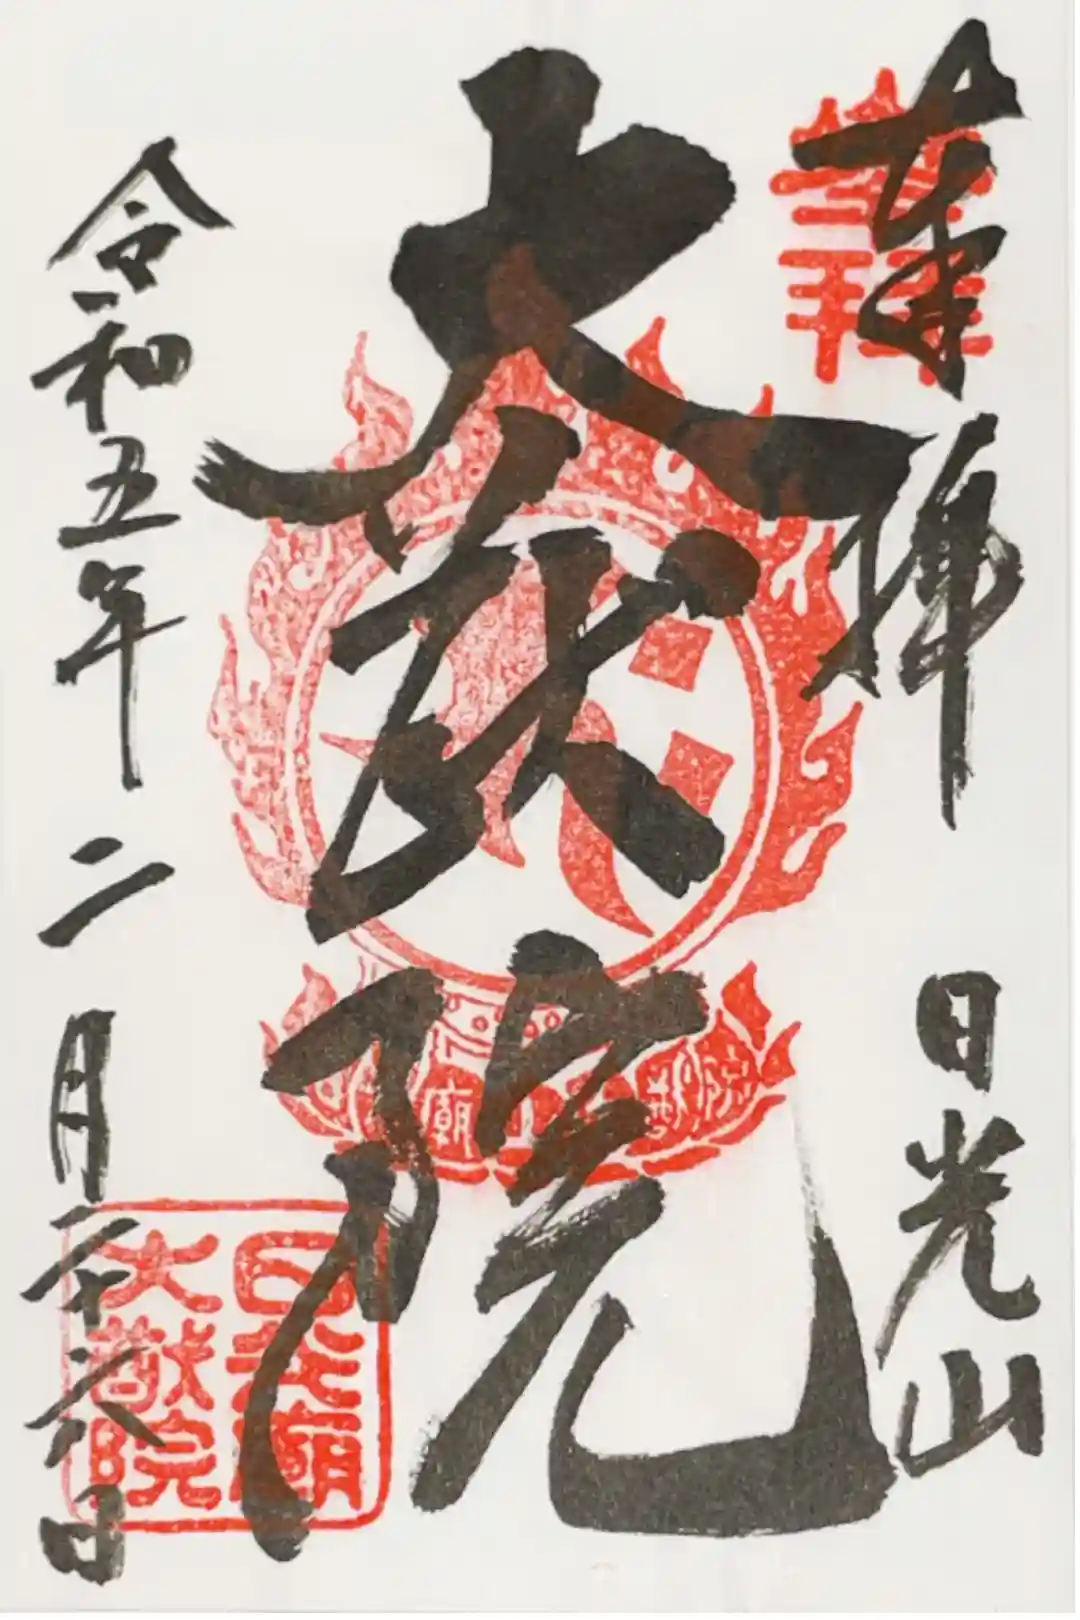 奉拝 日光山
大猷院
令和五年二月二十六日
日光廟
大猷院